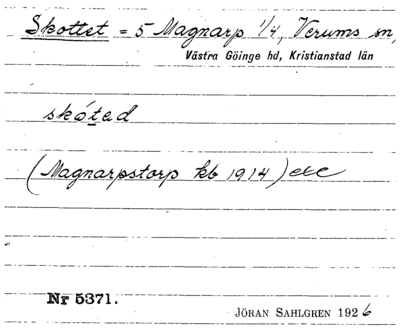 Skottet = 5 Magnarp 1/4, Verums sn,
Västra Göinge hd, Kristianstad län
skóted
(Magnarpstorp kb 1914) etc
Nr 5371.
JÖRAN SAHLGREN 1926